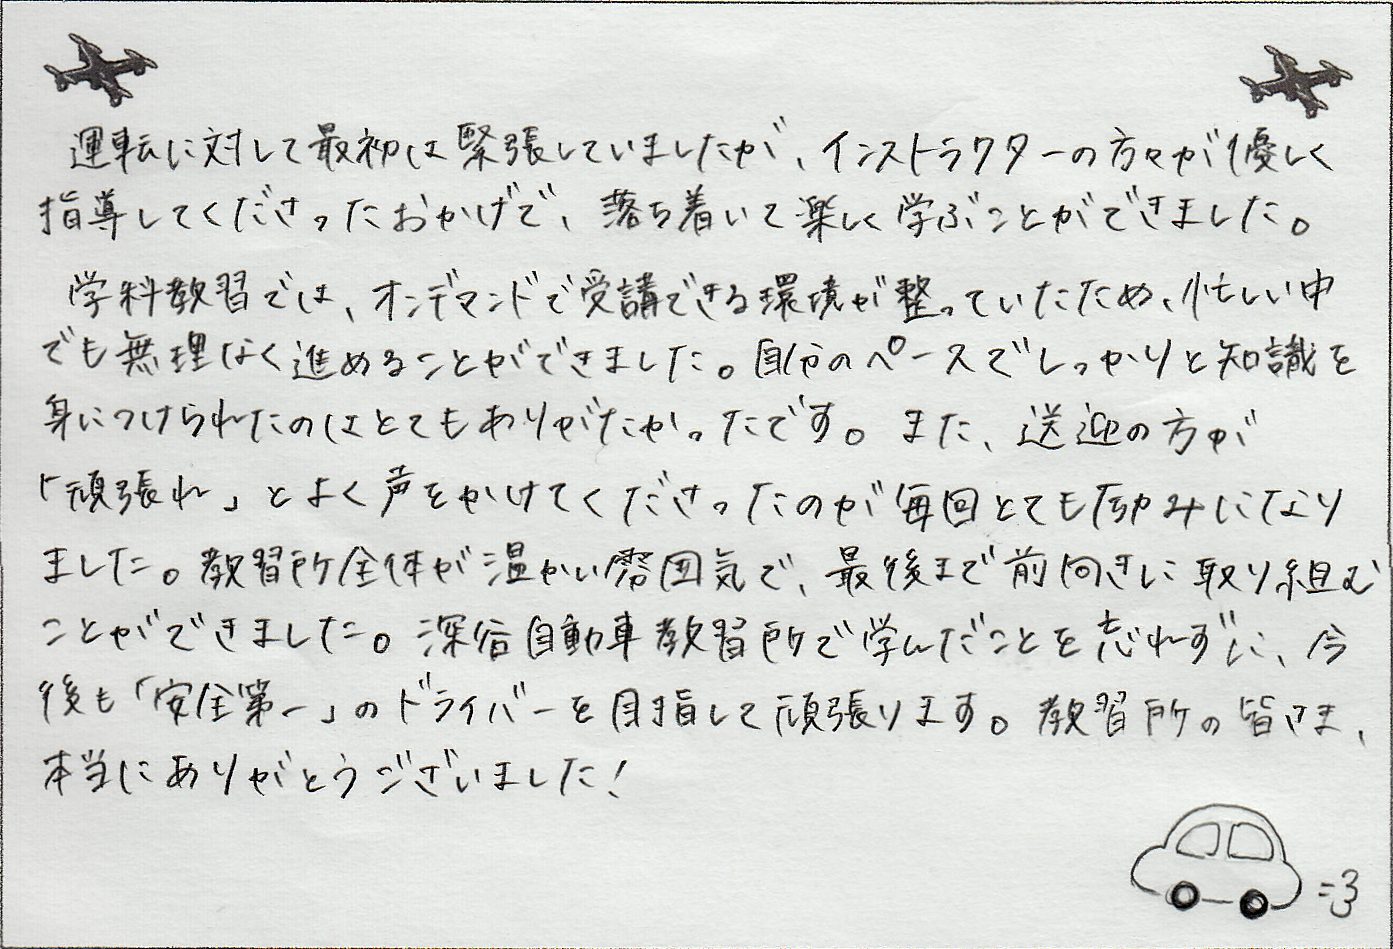 運転に対して最初は緊張していましたが、インストラクターの方々が優しく
指導してくださったおかげで、落ち着いて楽しく学ぶことができました。
学科教習では、オンデマンドで受講できる環境が整っていたため、忙しい中
でも無理なく進めることができました。自分のペースでしっかりと知識を
身につけられたのはとてもありがたかったです。また、送迎の方が
「頑張れ」とよく声をかけてくださったのが毎回とても励みになり
ました。教習所全体が温かい雰囲気で、最後まで前向きに取り組む
ことができました。深谷自動車教習所で学んだことを忘れずに、今
後も「安全第一」のドライバーを目指して頑張ります。教習所の皆さま、
本当にありがとうございました!